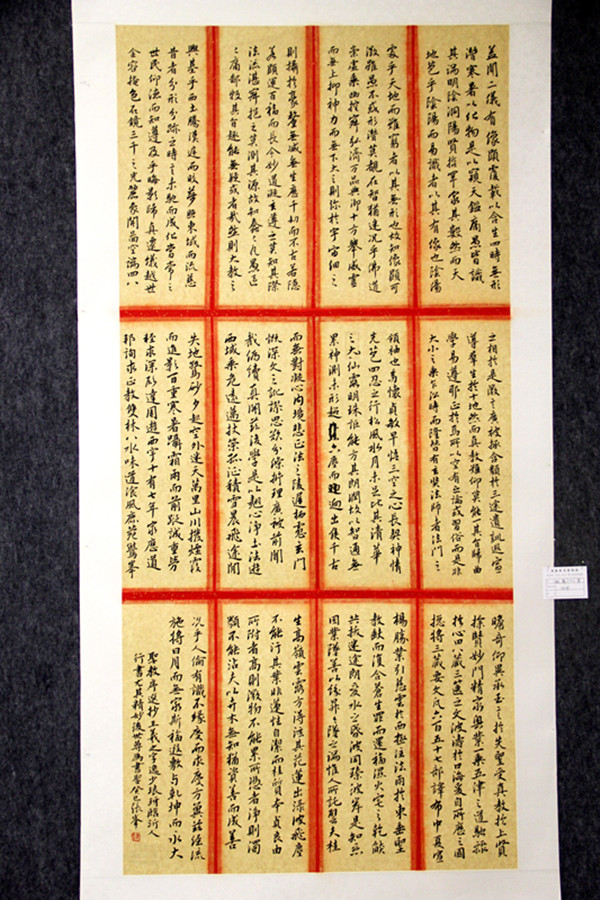 蓋聞二儀有像顯覆載以含生四時無形
潛寒暑以化物是以窺天鑑庸愚皆識
其端明陰洞陽賢哲罕窮其數然而天
地苞乎陰陽而易識者以其有像也陰陽
處乎天地而難窮者以其無形也故知像顯可
徵雖愚不惑形潛莫覩在智猶迷況乎佛道
崇虛乘幽控寂弘濟萬品典御十方舉威靈
而無上抑神力而無下大之則彌於宇宙細之
則攝於豪釐無滅無生歷千劫而不古若隱
若顯運百福而長今妙道凝玄遵之莫知其際
法流湛寂挹之莫測其源故知蠢蠢凡愚區
區庸鄙投其旨趣能無疑或者哉然則大教之
興基乎西土騰漢庭而皎夢照東域而流慈
昔者分形分跡之時言未馳而成化當常之
世民仰德而知遵及乎晦影歸真遷儀越世
金容掩色不鏡三千之光麗象開圖空端四八
之相於是微言廣被拯含類於三途遺訓遐宣
導群生於十地然而真教難仰莫能一其旨歸曲
學易遵耶正於焉所以空有之論或習俗而是非
大小之乘乍沿時而隆替有玄奘法師者法門之
領袖也幼懷貞敏早悟三空之心長契神情
先苞四忍之行松風水月未足比其清華
仙露明珠詎能方其朗潤故以智通無
累神測未形超六塵而迥出隻千古
而無對凝心內境悲正法之陵遲栖慮玄門
慨深文之訛謬思欲分條析理廣彼前聞
截偽續真開茲後學是以翹心淨土法遊
西域乘危遠邁杖策孤征積雪晨飛途間
失地驚砂夕起空外迷天萬里山川撥煙霞
而進影百重寒暑躡霜雨而前蹤誠重勞
輕求深願達周遊西宇十有七年窮歷道
邦詢求正教雙林八水味道湌風鹿菀鷲峯
瞻奇仰異承至言於先聖受真教於上賢
探賾妙門精窮奧業一乘五律之道馳驟
於心田八藏三篋之文波濤於口海爰自所歷之國
惣將三藏要文凡六百五十七部譯布中夏宣
揚勝業引慈雲於西極注法雨於東垂聖
教缺而復全蒼生罪而還福濕火宅之乾燄
共拔迷途朗愛水之昏波同臻彼岸是知惡
因業墜善以緣昇昇墜之端惟人所託譬夫桂
生高嶺雲露方得泫其花蓮出淥波飛塵
不能汙其葉非蓮性自潔而桂質本貞良由
所附者高則微物不能累所憑者淨則濁
類不能沾夫以卉木無知猶資善而成善
況乎人倫有識不緣慶而求慶方冀茲經流
施將日月而無窮斯福遐敷與乾坤而永大
聖教序選抄王羲之字逸少琅琊臨沂人
行書尤其精妙後世尊為書聖癸巳張峯